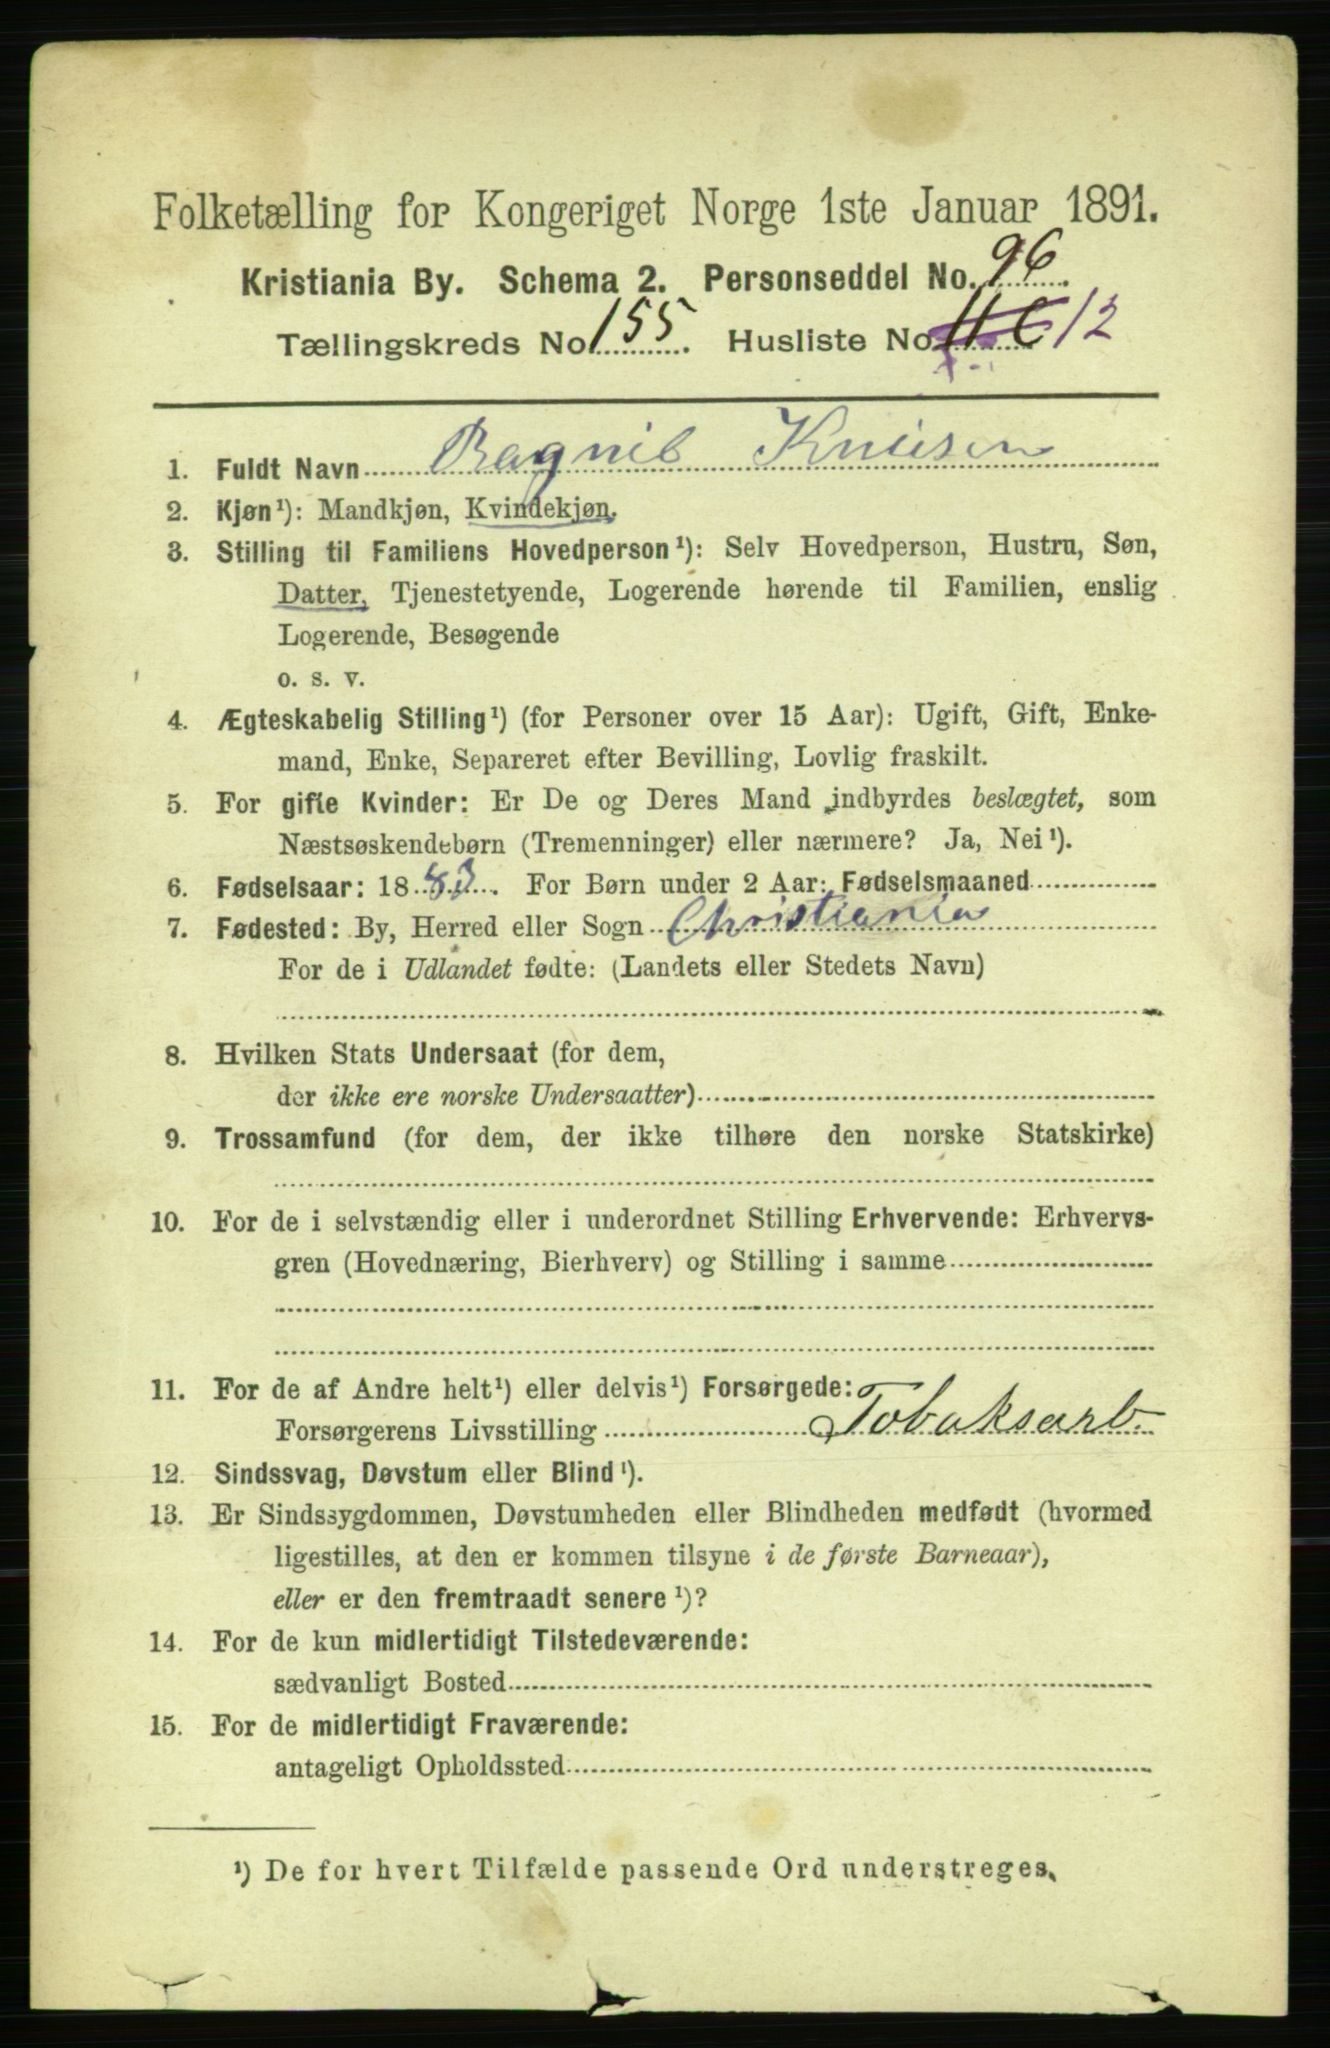 Folketælling for Kongeriget Norge 1ste Januar 1891.
Kristiania By. Schema 2. Personseddel No. 96.
Tællingskreds No 155. Husliste No 11 C 12
1. Fuldt Navn Ragnil Knusen
2. Kjøn¹): Mandkjøn, Kvindekjøn.
3. Stilling til Familiens Hovedperson¹): Selv Hovedperson, Hustru, Søn,
Datter, Tjenestetyende, Logerende hørende til Familien, enslig
Logerende, Besøgende
o. s. v.
4. Ægteskabelig Stilling¹) (for Personer over 15 Aar): Ugift, Gift, Enke-
mand, Enke, Separeret efter Bevilling, Lovlig fraskilt.
5. For gifte Kvinder: Er De og Deres Mand indbyrdes beslægtet, som
Næstsøskendebørn (Tremenninger) eller nærmere? Ja, Nei¹).
6. Fødselsaar: 1883. For Børn under 2 Aar: Fødselsmaaned
7. Fødested: By, Herred eller Sogn Christiania
For de i Udlandet fødte: (Landets eller Stedets Navn)
8. Hvilken Stats Undersaat (for dem,
der ikke ere norske Undersaatter)
9. Trossamfund (for dem, der ikke tilhøre den norske Statskirke)
10. For de i selvstændig eller i underordnet Stilling Erhvervende: Erhvervs-
gren (Hovednæring, Bierhverv) og Stilling i samme
11. For de af Andre helt¹) eller delvis¹) Forsørgede:
Forsørgerens Livsstilling Tobaksarb.
12. Sindssvag, Døvstum eller Blind¹).
13. Er Sindssygdommen, Døvstumheden eller Blindheden medfødt (hvormed
ligestilles, at den er kommen tilsyne i de første Barneaar),
eller er den fremtraadt senere¹)?
14. For de kun midlertidigt Tilstedeværende:
sædvanligt Bosted
15. For de midlertidigt Fraværende:
antageligt Opholdssted
¹) De for hvert Tilfælde passende Ord understreges.